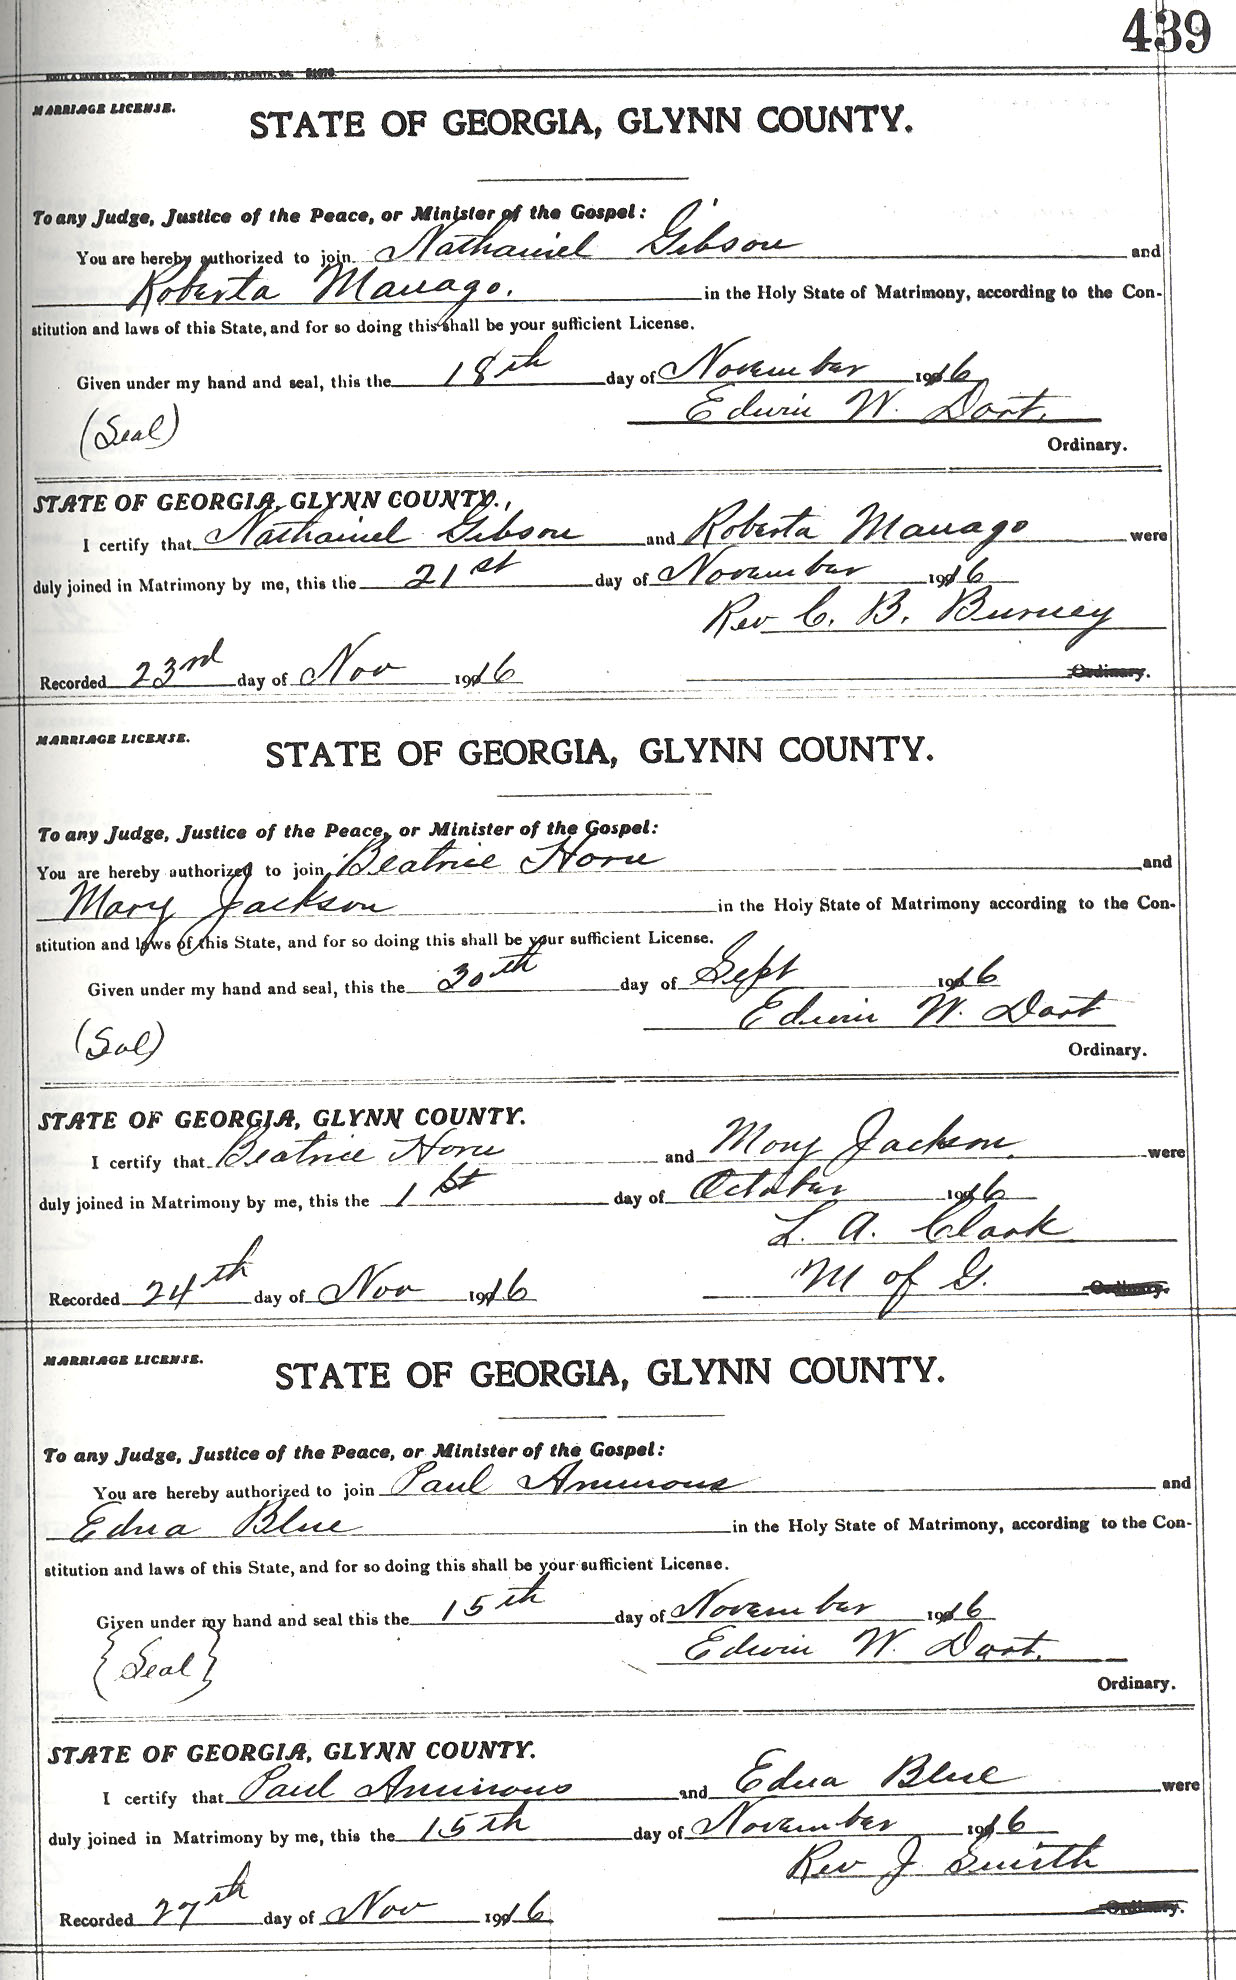 439
FOOTE & DAVIES CO., PRINTERS AND BINDERS, ATLANTA, GA.
MARRIAGE LICENSE.
STATE OF GEORGIA, GLYNN COUNTY.
To any Judge, Justice of the Peace, or Minister of the Gospel:
You are hereby authorized to join Nathaniel Gibson and
Roberta Manago. in the Holy State of Matrimony, according to the Con-
stitution and laws of this State, and for so doing this shall be your sufficient License.
Given under my hand and seal, this the 18th day of November 1916
(Seal) Edwin W. Dart.
Ordinary.
STATE OF GEORGIA, GLYNN COUNTY.,
I certify that Nathaniel Gibson and Roberta Manago were
duly joined in Matrimony by me, this the 21st day of November 1916
Rev C. B. Burney
Recorded 23rd day of Nov 1916 Ordinary.
MARRIAGE LICENSE.
STATE OF GEORGIA, GLYNN COUNTY.
To any Judge, Justice of the Peace, or Minister of the Gospel:
You are hereby authorized to join Beatrice Horne and
Mary Jackson in the Holy State of Matrimony according to the Con-
stitution and laws of this State, and for so doing this shall be your sufficient License.
Given under my hand and seal, this the 30th day of Sept 1916
Edwin W. Dart
(Seal) Ordinary.
STATE OF GEORGIA, GLYNN COUNTY.
I certify that Beatrice Horne and Mary Jackson. were
duly joined in Matrimony by me, this the 1st day of October 1916
L. A. Clark
Recorded 24th day of Nov 1916 M of G. Ordinary.
MARRIAGE LICENSE.
STATE OF GEORGIA, GLYNN COUNTY.
To any Judge, Justice of the Peace, or Minister of the Gospel:
You are hereby authorized to join Paul Ammons and
Edna Blue in the Holy State of Matrimony, according to the Con-
stitution and laws of this State, and for so doing this shall be your sufficient License.
Given under my hand and seal this the 15th day of November 1916
{Seal} Edwin W. Dart.
Ordinary.
STATE OF GEORGIA, GLYNN COUNTY.
I certify that Paul Ammons and Edna Blue were
duly joined in Matrimony by me, this the 15th day of November 1916
Rev J Smith
Recorded 27th day of Nov 1916 Ordinary.